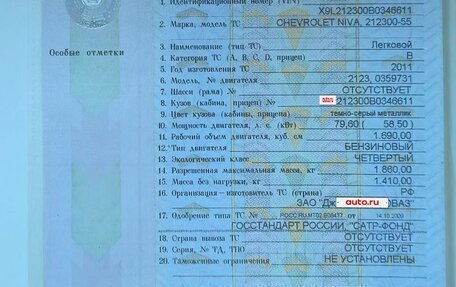 1. Идентификационный номер (VIN) X9L212300B0346611
2. Марка, модель ТС CHEVROLET NIVA, 212300-55
Особые отметки
3. Наименование (тип ТС) Легковой
4. Категория ТС (А, В, С, D, прицеп) В
5. Год изготовления ТС 2011
6. Модель, № двигателя 2123, 0359731
7. Шасси (рама) № ОТСУТСТВУЕТ
8. Кузов (кабина, прицеп) № 212300B0346611
9. Цвет кузова (кабины, прицепа) темно-серый металлик
10. Мощность двигателя, л. с. (кВт) 79,60 ( 58,50 )
11. Рабочий объем двигателя, куб. см 1,690.00
12. Тип двигателя БЕНЗИНОВЫЙ
13. Экологический класс ЧЕТВЕРТЫЙ
14. Разрешенная максимальная масса, кг 1,860.00
15. Масса без нагрузки, кг 1,410.00
16. Организация—изготовитель ТС (страна) РФ
ЗАО "Дж auto.ru ОВАЗ"
17. Одобрение типа ТС № РОСС RU.MT02 14.10.2009
ГОССТАНДАРТ РОССИИ, "САТР-ФОНД"
18. Страна вывоза ТС ОТСУТСТВУЕТ
19. Серия, № ТД, ТПО ОТСУТСТВУЕТ
20. Таможенные ограничения НЕ УСТАНОВЛЕНЫ